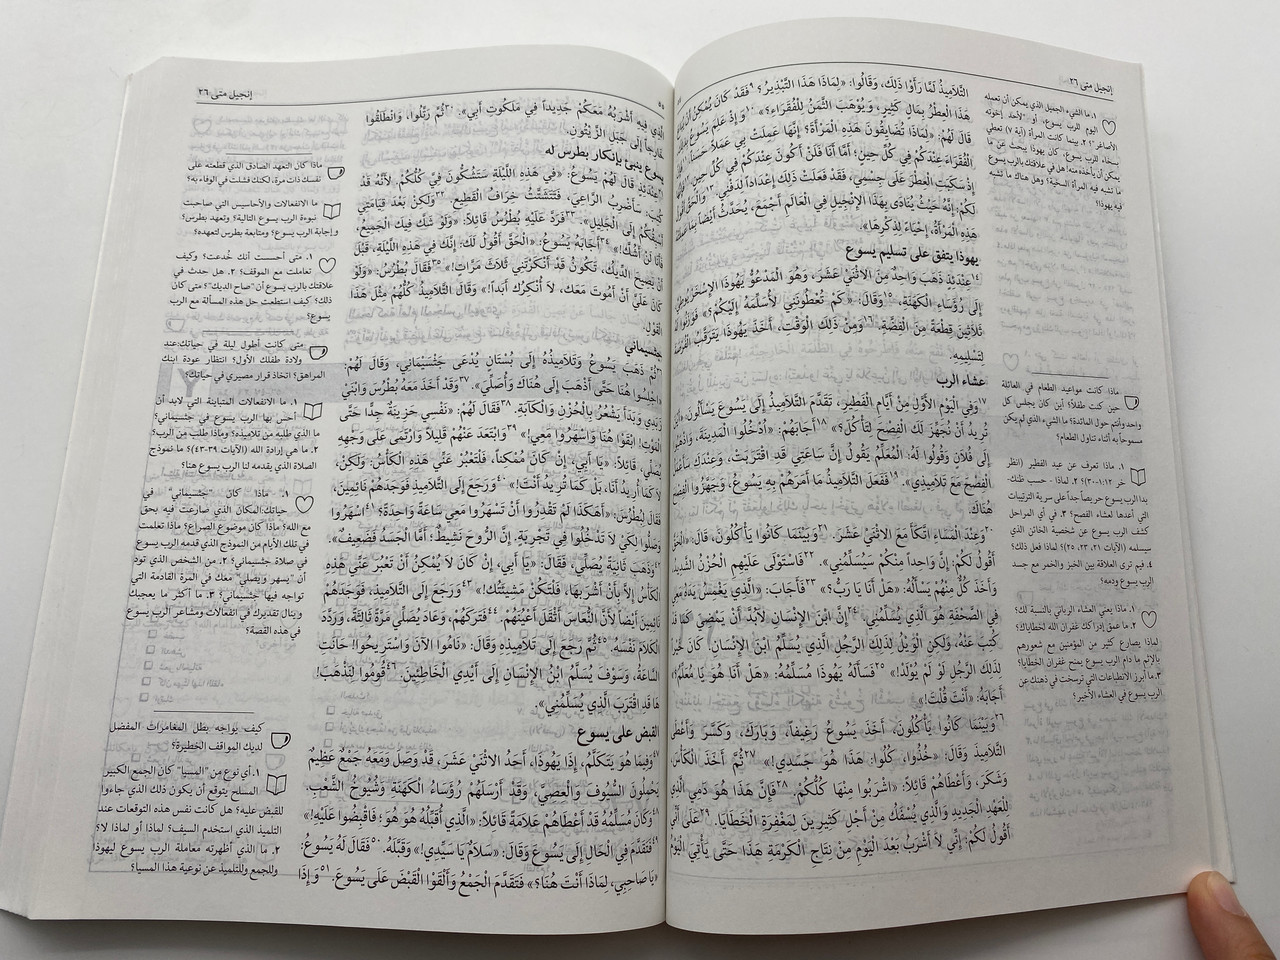 إنجيل متى ٢٦
التَّلامِيذُ لَمَّا رَأَوْا ذَلِكَ، وَقَالُوا: «لِمَاذَا هَذَا التَّبْذِيرُ؟ ٩فَقَدْ كَانَ يُمْكِنُ أَنْ
هَذَا الْعِطْرُ بِمَالٍ كَثِيرٍ، وَيُوْهَبَ الثَّمَنُ لِلْفُقَرَاءِ؟» ١٠وَإِذْ عَلِمَ يَسُوعُ
قَالَ لَهُمْ: «لِمَاذَا تُضَايِقُونَ هَذِهِ الْمَرْأَةَ؟ إِنَّهَا عَمِلَتْ بِي عَمَلاً حَسَناً.
الْفُقَرَاءَ عِنْدَكُمْ فِي كُلِّ حِينٍ؛ أَمَّا أَنَا فَلَنْ أَكُونَ عِنْدَكُمْ فِي كُلِّ حِينٍ.
إِذْ سَكَبَتِ الْعِطْرَ عَلَى جِسْمِي، فَقَدْ فَعَلَتْ ذَلِكَ إِعْدَاداً لِدَفْنِي. ١٣وَالْحَقَّ أَقُولُ
لَكُمْ: إِنَّهُ حَيْثُ يُنَادَى بِهَذَا الإِنْجِيلِ فِي الْعَالَمِ أَجْمَعَ، يُحَدَّثُ أَيْضاً بِمَا عَمِلَتْهُ
هَذِهِ الْمَرْأَةُ، إِحْيَاءً لِذِكْرِهَا».
يهوذا يتفق على تسليم يسوع
١٤عِنْدَئِذٍ ذَهَبَ وَاحِدٌ مِنَ الاثْنَيْ عَشَرَ، وَهُوَ الْمَدْعُوُّ يَهُوذَا الإِسْخَرْيُوطِيَّ،
إِلَى رُؤَسَاءِ الْكَهَنَةِ، ١٥وَقَالَ: «كَمْ تُعْطُونَنِي لأُسَلِّمَهُ إِلَيْكُمْ؟» فَوَزَنُوا لَهُ
ثَلاثِينَ قِطْعَةً مِنَ الْفِضَّةِ. ١٦وَمِنْ ذَلِكَ الْوَقْتِ، أَخَذَ يَهُوذَا يَتَرَقَّبُ الْفُرْصَةَ
لِتَسْلِيمِهِ.
عشاء الرب
١٧وَفِي الْيَوْمِ الأَوَّلِ مِنْ أَيَّامِ الْفَطِيرِ، تَقَدَّمَ التَّلامِيذُ إِلَى يَسُوعَ يَسْأَلُونَ:
تُرِيدُ أَنْ نُجَهِّزَ لَكَ الْفِصْحَ لِتَأْكُلَ؟» ١٨أَجَابَهُمْ: «اُدْخُلُوا الْمَدِينَةَ،
إِلَى فُلانٍ وَقُولُوا لَهُ: الْمُعَلِّمُ يَقُولُ إِنَّ سَاعَتِي قَدِ اقْتَرَبَتْ، وَعِنْدَكَ سَأَعْمَلُ
الْفِصْحَ مَعَ تَلامِيذِي». ١٩فَفَعَلَ التَّلامِيذُ مَا أَمَرَهُمْ بِهِ يَسُوعُ، وَجَهَّزُوا الْفِصْحَ
هُنَاكَ.
٢٠وَعِنْدَ الْمَسَاءِ اتَّكَأَ مَعَ الاثْنَيْ عَشَرَ. ٢١وَبَيْنَمَا كَانُوا يَأْكُلُونَ، قَالَ: «الْحَقَّ
أَقُولُ لَكُمْ: إِنَّ وَاحِداً مِنْكُمْ سَيُسَلِّمُنِي». ٢٢فَاسْتَوْلَى عَلَيْهِمِ الْحُزْنُ الشَّدِيدُ،
وَأَخَذَ كُلٌّ مِنْهُمْ يَسْأَلُهُ: «هَلْ أَنَا يَا رَبُّ؟» ٢٣فَأَجَابَ: «الَّذِي يَغْمِسُ يَدَهُ مَعِي
فِي الصَّحْفَةِ هُوَ الَّذِي يُسَلِّمُنِي. ٢٤إِنَّ ابْنَ الإِنْسَانِ لابُدَّ أَنْ يَمْضِيَ كَمَا قَدْ
كُتِبَ عَنْهُ، وَلكِنِ الْوَيْلُ لِذَلِكَ الرَّجُلِ الَّذِي يُسَلَّمُ ابْنُ الإِنْسَانِ. كَانَ خَيْراً
لِذَلِكَ الرَّجُلِ لَوْ لَمْ يُولَدْ!» ٢٥فَسَأَلَهُ يَهُوذَا مُسَلِّمُهُ: «هَلْ أَنَا هُوَ يَا مُعَلِّمُ؟»
أَجَابَهُ: «أَنْتَ قُلْتَ!»
٢٦وَبَيْنَمَا كَانُوا يَأْكُلُونَ، أَخَذَ يَسُوعُ رَغِيفاً، وَبَارَكَ، وَكَسَّرَ وَأَعْطَى
التَّلامِيذَ وَقَالَ: «خُذُوا، كُلُوا: هَذَا هُوَ جَسَدِي!» ٢٧ثُمَّ أَخَذَ الْكَأْسَ،
وَشَكَرَ، وَأَعْطَاهُمْ قَائِلاً: «اشْرَبُوا مِنْهَا كُلُّكُمْ. ٢٨فَإِنَّ هَذَا هُوَ دَمِي الَّذِي
لِلْعَهْدِ الْجَدِيدِ وَالَّذِي يُسْفَكُ مِنْ أَجْلِ كَثِيرِينَ لِمَغْفِرَةِ الْخَطَايَا. ٢٩عَلَى أَنِّي
أَقُولُ لَكُمْ: إِنِّي لَا أَشْرَبُ بَعْدَ الْيَوْمِ مِنْ نِتَاجِ الْكَرْمَةِ هَذَا حَتَّى يَأْتِيَ الْيَوْمُ
١. ما الشيء الجميل الذي يمكن أن تعمله
اليوم للرب يسوع، أو "لأحد إخوته
الأصاغر"؟ ٢. بينما كانت المرأة (آية ٧) تعطي
بسخاء للرب يسوع، كان يهوذا يبحث عن ما
يمكن أن يأخذه منه! هل في علاقتك بالرب يسوع
ما تشبه فيه المرأة السخية؟ وهل هناك ما تشبه
فيه يهوذا؟
ماذا كانت مواعيد الطعام في العائلة
حين كنت طفلاً؟ أين كان يجلس كل
واحد وأنتم حول المائدة؟ ما الشيء الذي لم يكن
مسموحاً به أثناء تناول الطعام؟
١. ماذا تعرف عن عيد الفطير (انظر
خر ١:١٢-٣٠)؟ ٢. لماذا - حسب ظنك-
بدا الرب يسوع حريصاً جداً على سرية الترتيبات
التي أعدها لعشاء الفصح؟ ٣. في أي المراحل
كشف الرب يسوع عن شخصية الخائن الذي
سيسلمه (الآيات ٢١، ٢٣، ٢٥)؟ لماذا فعل ذلك؟
٤. فيم ترى العلاقة بين الخبز والخمر مع جسد
الرب يسوع ودمه؟
١. ماذا يعني العشاء الرباني بالنسبة لك؟
٢. ما عمق إدراكك غفران الله لخطاياك؟
لماذا يصارع كثير من المؤمنين مع شعورهم
بالإثم ما دام الرب يسوع يمنح غفران الخطايا؟
٣. ما أبرز الانطباعات التي ترسخت في ذهنك عن
الرب يسوع في العشاء الأخير؟
٥٥
إنجيل متى ٢٦
الَّذِي فِيهِ أَشْرَبُهُ مَعَكُمْ جَدِيداً فِي مَلَكُوتِ أَبِي». ٣٠ثُمَّ رَتَّلُوا، وَانْطَلَقُوا
خَارِجاً إِلَى جَبَلِ الزَّيْتُونِ.
يسوع ينبئ بإنكار بطرس له
عِنْدَئِذٍ قَالَ لَهُمْ يَسُوعُ: «فِي هَذِهِ اللَّيْلَةِ سَتَشُكُّونَ فِيَّ كُلُّكُمْ، لأَنَّهُ قَدْ
كُتِبَ: سَأَضْرِبُ الرَّاعِيَ، فَتَتَشَتَّتُ خِرَافُ الْقَطِيعِ. ٣٢وَلكِنْ بَعْدَ قِيَامَتِي
أَسْبِقُكُمْ إِلَى الْجَلِيلِ». ٣٣فَرَدَّ عَلَيْهِ بُطْرُسُ قَائِلاً: «وَلَوْ شَكَّ فِيكَ الْجَمِيعُ،
فَأَنَا لَنْ أَشُكَّ!» ٣٤أَجَابَهُ يَسُوعُ: «الْحَقَّ أَقُولُ لَكَ: إِنَّكَ فِي هَذِهِ اللَّيْلَةِ، قَبْلَ
أَنْ يَصِيحَ الدِّيكُ، تَكُونُ قَدْ أَنْكَرْتَنِي ثَلاثَ مَرَّاتٍ!» ٣٥فَقَالَ بُطْرُسُ: «وَلَوْ
كَانَ عَلَيَّ أَنْ أَمُوتَ مَعَكَ، لَا أُنْكِرُكَ أَبَداً!» وَقَالَ التَّلامِيذُ كُلُّهُمْ مِثْلَ هَذَا
الْقَوْلِ.
جثسيماني
٣٦ثُمَّ ذَهَبَ يَسُوعُ وَتَلامِيذُهُ إِلَى بُسْتَانٍ يُدْعَى جَثْسَيْمَانِي، وَقَالَ لَهُمْ:
«اجْلِسُوا هُنَا حَتَّى أَذْهَبَ إِلَى هُنَاكَ وَأُصَلِّيَ». ٣٧وَقَدْ أَخَذَ مَعَهُ بُطْرُسَ وَابْنَيْ
زَبَدِي وَبَدَأَ يَشْعُرُ بِالْحُزْنِ وَالْكَآبَةِ. ٣٨فَقَالَ لَهُمْ: «نَفْسِي حَزِينَةٌ جِدّاً حَتَّى
الْمَوْتِ! ابْقَوْا هُنَا وَاسْهَرُوا مَعِي!» ٣٩وَابْتَعَدَ عَنْهُمْ قَلِيلاً وَارْتَمَى عَلَى وَجْهِهِ
يُصَلِّي، قَائِلاً: «يَا أَبِي، إِنْ كَانَ مُمْكِناً، فَلْتَعْبُرْ عَنِّي هَذِهِ الْكَأْسُ. وَلكِنْ،
لا كَمَا أُرِيدُ أَنَا، بَلْ كَمَا تُرِيدُ أَنْتَ!» ٤٠وَرَجَعَ إِلَى التَّلامِيذِ فَوَجَدَهُمْ نَائِمِينَ،
فَقَالَ لِبُطْرُسَ: «أَهكَذَا لَمْ تَقْدِرُوا أَنْ تَسْهَرُوا مَعِي سَاعَةً وَاحِدَةً؟ ٤١اسْهَرُوا
وَصَلُّوا لِكَيْ لَا تَدْخُلُوا فِي تَجْرِبَةٍ. إِنَّ الرُّوحَ نَشِيطٌ؛ أَمَّا الْجَسَدُ فَضَعِيفٌ».
٤٢وَذَهَبَ ثَانِيَةً يُصَلِّي، فَقَالَ: «يَا أَبِي، إِنْ كَانَ لَا يُمْكِنُ أَنْ تَعْبُرَ عَنِّي هَذِهِ
الْكَأْسُ إِلاَّ بِأَنْ أَشْرَبَهَا، فَلْتَكُنْ مَشِيئَتُكَ!» ٤٣وَرَجَعَ إِلَى التَّلامِيذِ، فَوَجَدَهُمْ
نَائِمِينَ أَيْضاً لأَنَّ النُّعَاسَ أَثْقَلَ أَعْيُنَهُمْ. ٤٤فَتَرَكَهُمْ، وَعَادَ يُصَلِّي مَرَّةً ثَالِثَةً، وَرَدَّدَ
الْكَلامَ نَفْسَهُ. ٤٥ثُمَّ رَجَعَ إِلَى تَلامِيذِهِ وَقَالَ: «نَامُوا الآنَ وَاسْتَرِيحُوا! حَانَتِ
السَّاعَةُ، وَسَوْفَ يُسَلَّمُ ابْنُ الإِنْسَانِ إِلَى أَيْدِي الْخَاطِئِينَ. ٤٦قُومُوا لِنَذْهَبْ!
هَا قَدِ اقْتَرَبَ الَّذِي يُسَلِّمُنِي».
القبض على يسوع
٤٧وَفِيمَا هُوَ يَتَكَلَّمُ، إِذَا يَهُوذَا، أَحَدُ الاثْنَيْ عَشَرَ، قَدْ وَصَلَ وَمَعَهُ جَمْعٌ عَظِيمٌ
يَحْمِلُونَ السُّيُوفَ وَالْعِصِيَّ، وَقَدْ أَرْسَلَهُمْ رُؤَسَاءُ الْكَهَنَةِ وَشُيُوخُ الشَّعْبِ.
٤٨وَكَانَ مُسَلِّمُهُ قَدْ أَعْطَاهُمْ عَلامَةً قَائِلاً: «الَّذِي أُقَبِّلُهُ هُوَ هُوَ؛ فَاقْبِضُوا عَلَيْهِ!»
٤٩فَتَقَدَّمَ فِي الْحَالِ إِلَى يَسُوعَ وَقَالَ: «سَلامٌ يَا سَيِّدِي!» وَقَبَّلَهُ. ٥٠فَقَالَ لَهُ يَسُوعُ:
«يَا صَاحِبِي، لِمَاذَا أَنْتَ هُنَا؟» فَتَقَدَّمَ الْجَمْعُ وَأَلْقَوْا الْقَبْضَ عَلَى يَسُوعَ. ٥١وَإِذَا
ماذا كان التعهد الصادق الذي قطعته على
نفسك ذات مرة، لكنك فشلت في الوفاء به؟
ما الانفعالات والأحاسيس التي صاحبت
نبوءة الرب يسوع التالية؟ وتعهد بطرس؟
وإجابة الرب يسوع؟ ومتابعة بطرس لتعهده؟
١. متى أحسست أنك خُدعت؟ وكيف
تعاملت مع الموقف؟ ٢. هل حدث في
علاقتك بالرب يسوع أن "صاح الديك"؟ متى كان
ذلك؟ كيف استطعت حل هذه المسألة مع الرب
يسوع؟
متى كانت أطول ليلة في حياتك: عند
ولادة طفلك الأول؟ انتظار عودة ابنك
المراهق؟ اتخاذ قرار مصيري في حياتك؟
١. ما الانفعالات المتباينة التي لابد أن
أحس بها الرب يسوع في جثسيماني؟
ما الذي طلبه من تلاميذه؟ وماذا طلب من الرب؟
٢. ما هي إرادة الله (الآيات ٣٩-٤٣)؟ ما نموذج
الصلاة الذي يقدمه لنا الرب يسوع هنا؟
١. ماذا كان "جثسيماني" في
حياتك: المكان الذي صارعت فيه بحق
مع الله؟ ماذا كان موضوع الصراع؟ ماذا تعلمت
في تلك الأيام من النموذج الذي قدمه الرب يسوع
في صلاة جثسيماني؟ ٢. من الشخص الذي تود
أن "يسهر ويصلي" معك في المرة القادمة التي
تواجه فيها جثسيماني؟ ٣. ما أكثر ما يعجبك
وينال تقديرك في انفعالات ومشاعر الرب يسوع
في هذه القصة؟
كيف يُواجِه بطل المغامرات المفضل
لديك المواقف الخطيرة؟
١. أي نوع من "المسيا" كان الجمع الكبير
المسلح يتوقع أن يكون ذلك الذي جاءوا
للقبض عليه؟ هل كانت نفس هذه التوقعات عند
التلميذ الذي استخدم السيف؟ لماذا أو لماذا لا؟
٢. ما الذي أظهرته معاملة الرب يسوع ليهوذا
وللجمع وللتلميذ عن نوعية هذا المسيا؟